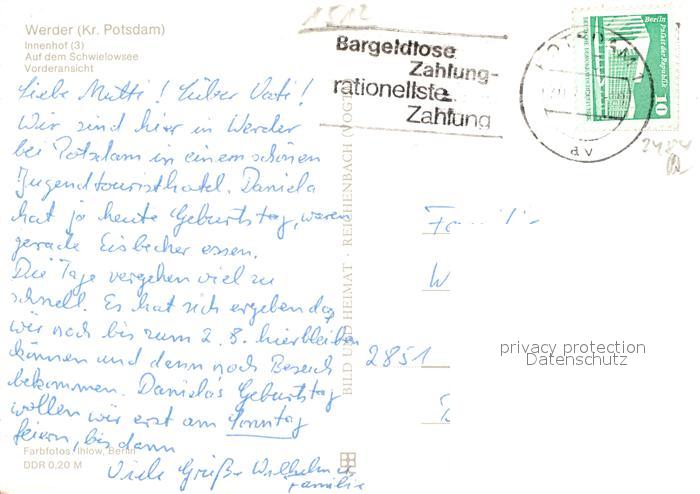 Werder (Kr. Potsdam)
Innenhof (3)
Auf dem Schwielowsee
Vorderansicht
1512
Bargeldlose
Zahlung-
rationellste
Zahlung
Berlin
Palast der Republik
10
av
2484
Liebe Mutti! Lieber Vati!
Wir sind hier in Werder
bei Potsdam in einem schönen
Jugendtouristhotel. Daniela
hat ja heute Geburtstag, waren
gerade Eisbecher essen.
Die Tage vergehen viel zu
schnell. Es hat sich ergeben daß
wir noch bis zum 2. 8. hierbleiben
können und dann noch Besuch
bekommen. Daniela's Geburtstag
wollen wir erst am Sonntag
feiern, bis dann
Viele Grüße Wilhelm u.
Familie
Farbfotos: Ihlow, Berlin
DDR 0,20 M
BILD UND HEIMAT · REICHENBACH (VOGTL
Famili
W
2851
privacy protection
Datenschutz